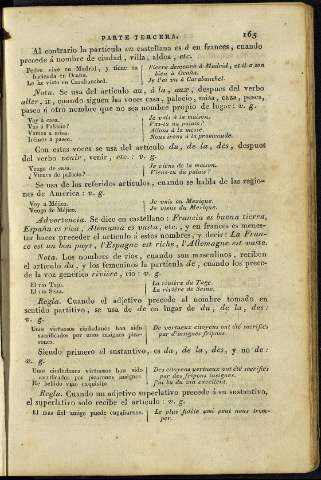 PARTE TERCERA. 165
Al contrario la particula en castellana es á en frances, cuando
precede á nombre de ciudad, villa, aldea, etc.
Pedro vive en Madrid, y tiene su Pierre demeure à Madrid, et il a son
hacienda en Ocaña. bien à Ocaña.
Lo he visto en Carabanchel. Je l'ai vu à Carabanchel.
Nota. Se usa del artículo au, á la, aux, despues del verbo
aller, ir, cuando siguen las voces casa, palacio, misa, caza, paseo,
paseo ó otro nombre que no sea nombre propio de lugar: v. g.
Voy á casa. Je vais à la maison.
Vas á Palacio? Vas-tu au palais?
Vamos á misa. Allons à la messe.
Iremos al paseo. Nous irons à la promenade.
Con estas voces se usa del artículo du, de la, des, despues
del verbo venir, venir, etc.: v. g.
Vengo de casa. Je viens de la maison.
¿Vienes de palacio? Viens-tu du palais?
Se usa de los referidos artículos, cuando se habla de las regio-
nes de América: v. g.
Voy á Méjico. Je vais au Mexique.
Vengo de Méjico. Je viens du Mexique.
Advertencia. Se dice en castellano: Francia es buena tierra,
España es rica, Alemania es vasta, etc., y en frances es menes-
ter hacer preceder el artículo á estos nombres, y decir: La Fran-
ce est un bon pays, l'Espagne est riche, l'Allemagne est vaste.
Nota. Los nombres de rios, cuando son masculinos, reciben
el artículo du, y los femeninos la partícula de, cuando los prece-
de la voz genérico rivière, rio: v. g.
El rio Tajo. La rivière du Tage.
El rio Sena. La rivière de Seine.
Regla. Cuando el adjetivo precede al nombre tomado en
sentido partitivo, se usa de de en lugar de du, de la, des:
v. g.
Unos virtuosos ciudadanos han sido De vertueux citoyens ont été sacrifiés
sacrificados por unos insignes pica- par d'insignes fripons.
rones.
Siendo primero el sustantivo, es du, de la, des, y no de:
v. g.
Unos ciudadanos virtuosos han sido Des citoyens vertueux ont été sacrifiés
sacrificados por picarones insignes. par des fripons insignes.
He bebido vino exquisito. J'ai bu du vin excellent.
Regla. Cuando un adjetivo superlativo precede á un sustantivo,
el superlativo solo recibe el artículo: v. g.
El mas fiel amigo puede engañarnos. Le plus fidèle ami peut nous trom-
per.